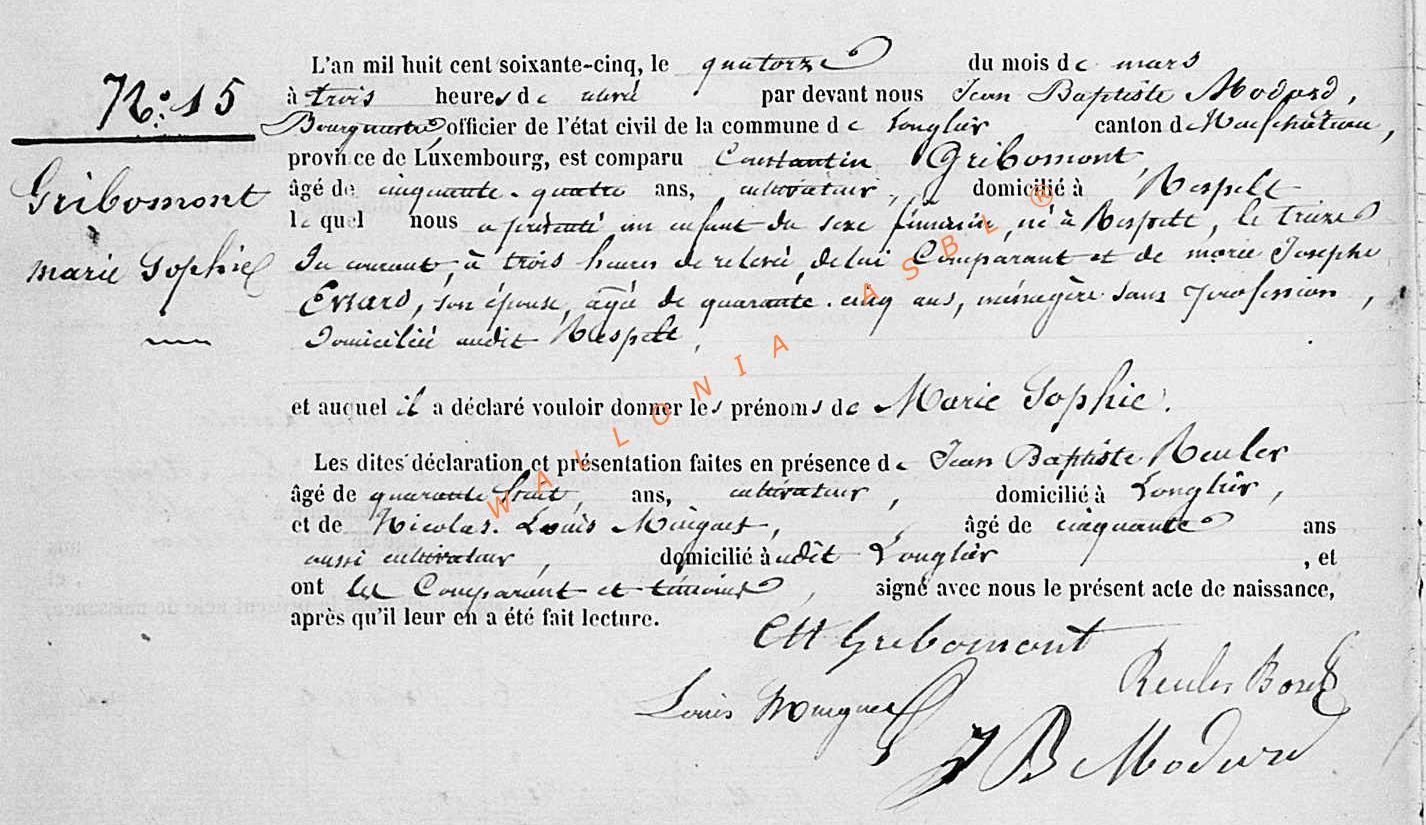 N.° 15
Gribomont
Marie Sophie
L'an mil huit cent soixante-cinq, le quatorze du mois de mars
à trois heures de par devant nous Jean Baptiste Modard,
Bourgmestre, officier de l'état civil de la commune de Longlier canton de Neufchâteau,
province de Luxembourg, est comparu Constantin Gribomont,
âgé de cinquante-quatre ans, cultivateur, domicilié à Respelt
lequel nous a présenté un enfant du sexe féminin, né à Respelt, le treize
du courant, à trois heures de relevée, de lui Comparant et de marie Josephe
Evrard, son épouse, âgée de quarante-cinq ans, ménagère sans profession,
domiciliée audit Respelt,
et auquel il a déclaré vouloir donner les prénoms de Marie Sophie.
Les dites déclaration et présentation faites en présence de Jean Baptiste Reuler
âgé de quarante huit ans, cultivateur, domicilié à Longlier,
et de Nicolas Louis Minguet, âgé de cinquante ans
aussi cultivateur, domicilié audit Longlier, et
ont les Comparant et témoins, signé avec nous le présent acte de naissance,
après qu'il leur en a été fait lecture.
Gribomont
Louis Minguet
Reuler
J B Modard
WALLONIA ASBL ®